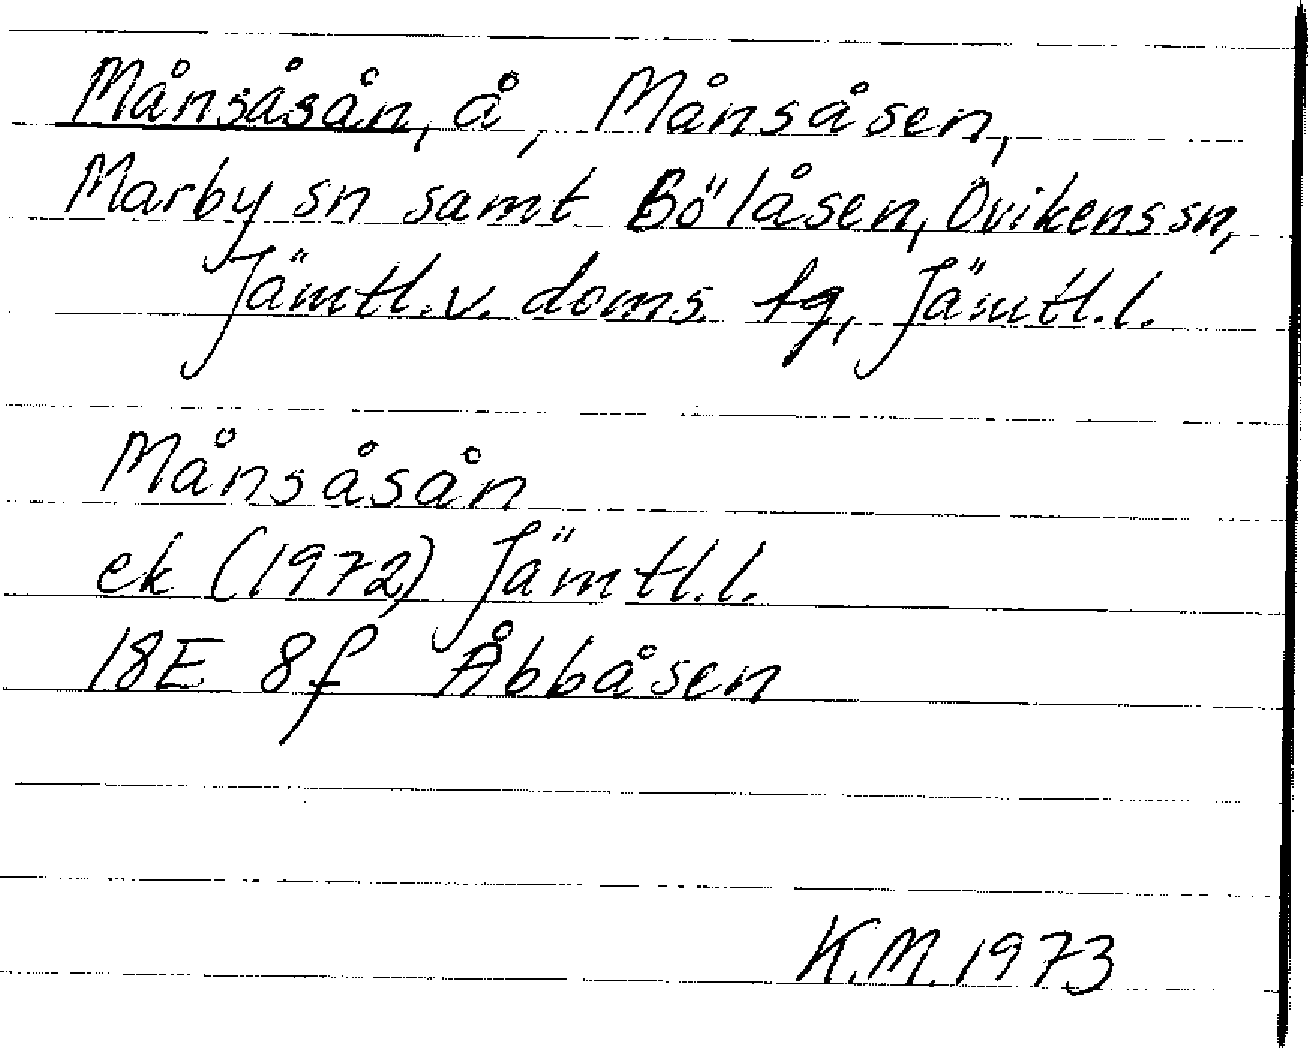 Månsåsån, å, Månsåsen,
Marby sn samt Bölåsen, Ovikens sn,
Jämtl. v. doms. tg, Jämtl. l.
Månsåsån
ek (1972) Jämtl. l.
18E 8f Åbbåsen
K.M. 1973